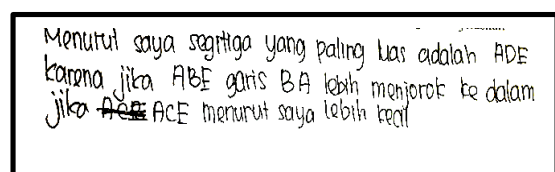 Menurut saya segitiga yang paling luas adalah ADE
karena jika ABE garis BA lebih menjorok ke dalam
jika ACE menurut saya lebih kecil